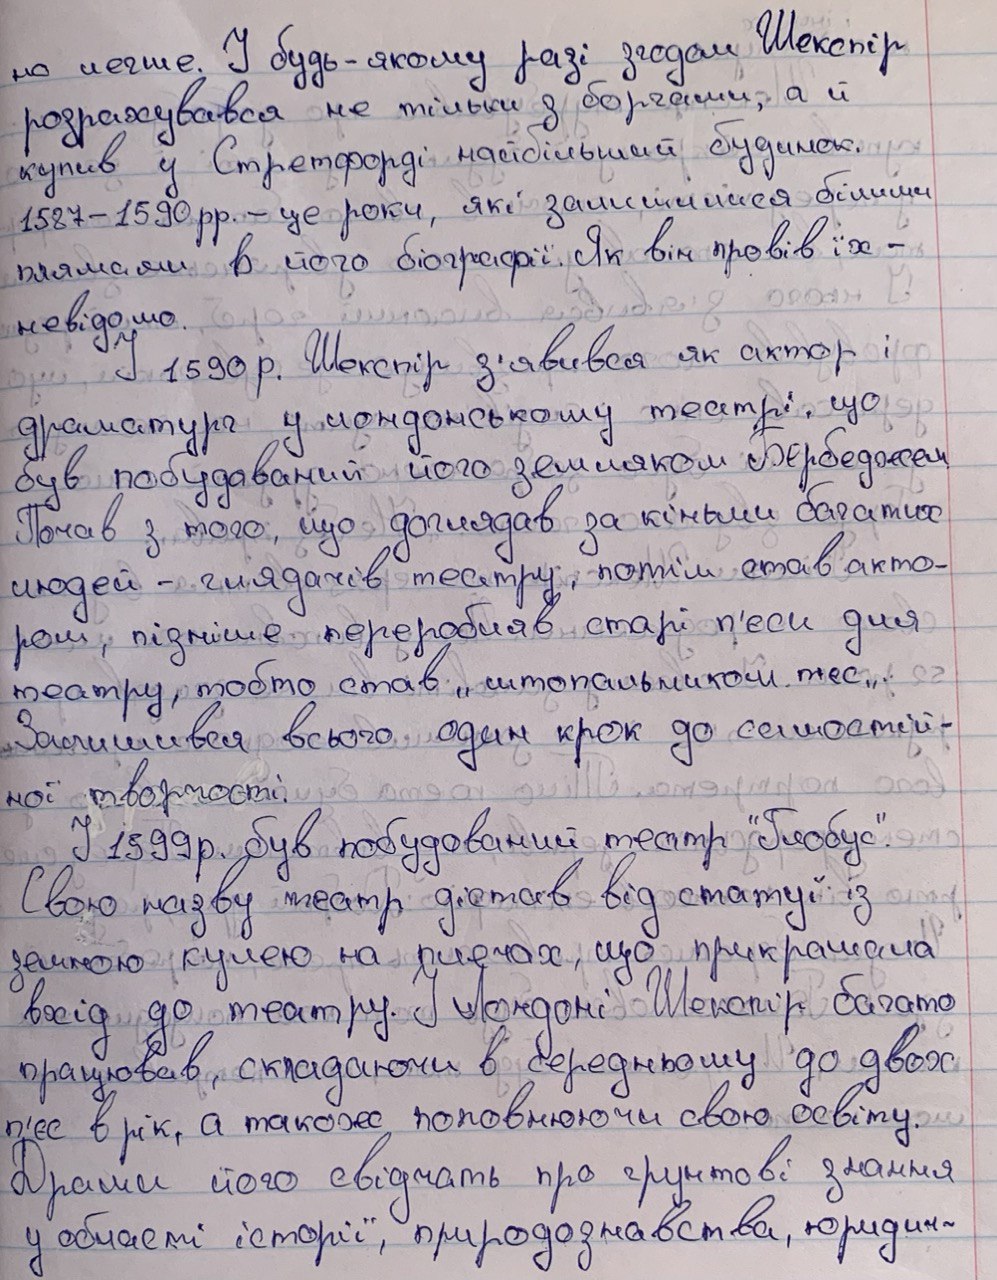 но легше. У будь-якому разі згодом Шекспір
розрахувався не тільки з боргами, а й
купив у Стретфорді найбільший будинок.
1587-1590 рр. - це роки, які залишилися білими
плямами в його біографії. Як він провів їх -
невідомо.
У 1590 р. Шекспір з'явився як актор і
драматург у лондонському театрі, що
був побудований його земляком Бербеджем
Почав з того, що доглядав за кіньми багатих
людей - глядачів театру, потім став акто-
ром, пізніше переробляв старі п'єси для
театру, тобто став „штопальником пєс„.
Залишився всього один крок до самостій-
ної творчості.
У 1599 р. був побудований театр "Глобус".
Свою назву театр дістав від статуї із
земною кулею на плечах, що прикрашала
вхід до театру. У Лондоні Шекспір багато
працював, складаючи в середньому до двох
п'єс в рік, а також поповнюючи свою освіту.
Драми його свідчать про грунтові знання
у області історії, природознавства, юридич-